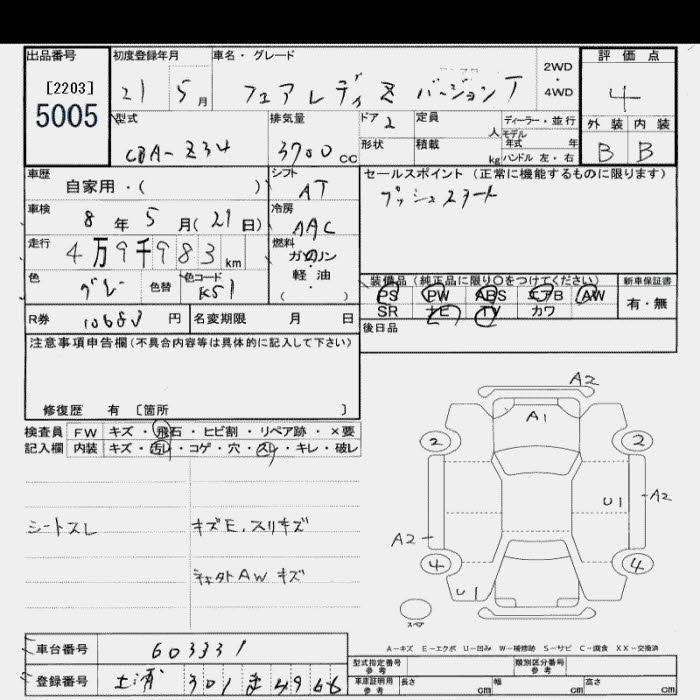 出品番号 初度登録年月 車名・グレード 2WD・4WD 評価点
[2203]
5005
21 5月 フェアレディZ バージョンT 4
型式 排気量 ドア 定員 ディーラー・並行 外装 内装
CBA-Z34 3700cc 2 人 モデル年式 年 B B
形状 積載 kg ハンドル 左・右
車歴 シフト セールスポイント(正常に機能するものに限ります)
自家用・( ) AT プッシュスタート
車検 冷房
8年 5月(21日) AAC
走行 燃料
4万9千983km ガソリン・軽油・( )
色 色替 色コード 装備品(純正品に限り○をつけてください) 新車保証書
グレー K51 PS PW ABS エアB AW 有・無
SR ナビ TV カワ
R券 10680円 名変期限 月 日 後日品
注意事項申告欄(不具合内容等は具体的に記入して下さい)
修復歴 有 〔箇所 〕
検査員 FW キズ・飛石・ヒビ割・リペア跡・×要
記入欄 内装 キズ・汚れ・コゲ・穴・スレ・キレ・破レ
A2
A1
2 2
U1 A2
A2
4 4
U1
スペア
シートスレ キズE、スリキズ
AWキズ
A-キズ E-エクボ U-凹み W-補修跡 S-サビ C-腐食 XX-交換済
車台番号 603331
登録番号 土浦 301 ま 4966
型式指定番号 参考 類別区分番号 参考
車庫証明用 参考 長さ cm 幅 cm 高さ cm